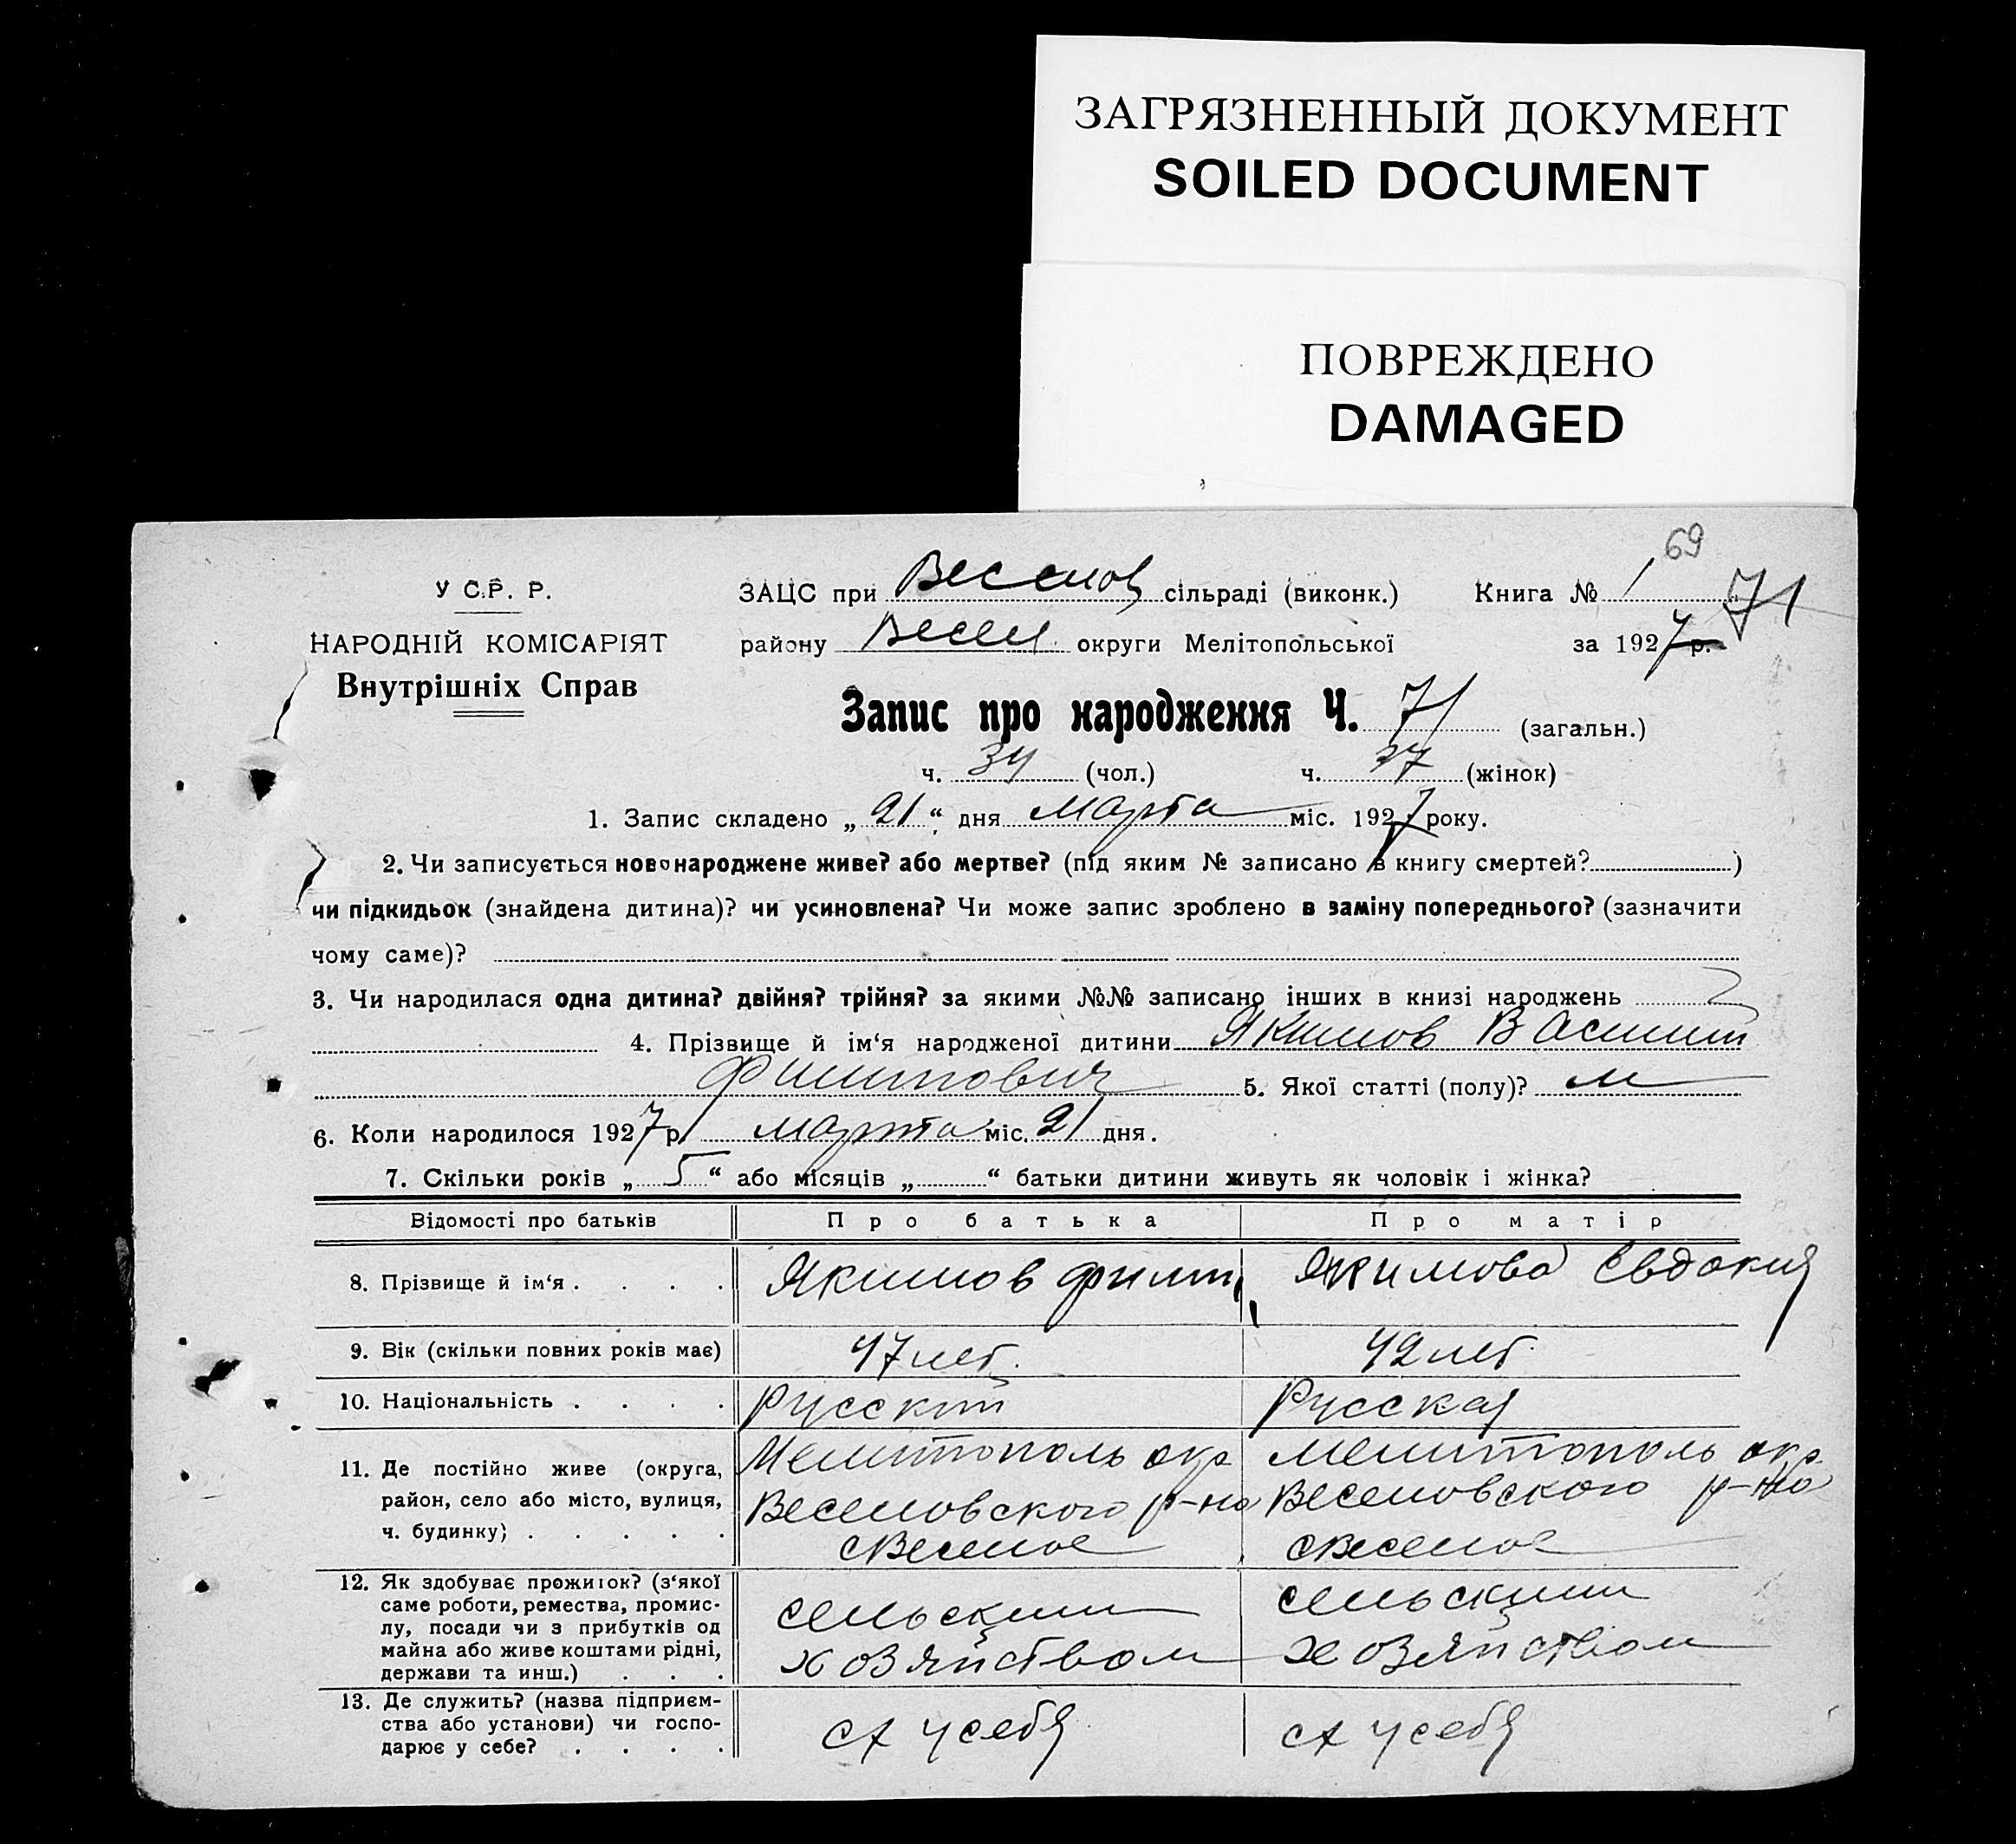 ЗАГРЯЗНЕННЫЙ ДОКУМЕНТ
SOILED DOCUMENT
ПОВРЕЖДЕНО
DAMAGED
69
У С.Р. Р.
ЗАЦС при Веселов сільраді (виконк.) Книга № 1 71
НАРОДНІЙ КОМІСАРІЯТ
району Весел округи Мелітопольської за 1927 р.
Внутрішніх Справ
Запис про народження Ч. 71 (загальн.)
ч. 34 (чол.) ч. 37 (жінок)
1. Запис складено „21“ дня марта міс. 1927 року.
2. Чи записується новонароджене живе? або мертве? (під яким № записано в книгу смертей?)
чи підкидьок (знайдена дитина)? чи усиновлена? Чи може запис зроблено в заміну попереднього? (зазначити
чому саме)?
3. Чи народилася одна дитина? двійня? трійня? за якими №№ записано інших в книзі народжень
4. Прізвище й ім‘я народженої дитини Якимов Василий
Филипович 5. Якої статті (полу)? м
6. Коли народилося 1927 р. марта міс. 21 дня.
7. Скільки років „5“ або місяців „“ батьки дитини живуть як чоловік і жінка?
Відомості про батьків Про батька Про матір
8. Прізвище й ім‘я . . . . Якимов Филип Якимова Евдокия
9. Вік (скільки повних років має) 47 лет. 42 лет.
10. Національність . . . . Русский Русская
11. Де постійно живе (округа, район, село або місто, вулиця, ч. будинку) . . . . .
Мелитополь окр Мелитополь окр
Веселовского р-на Веселовского р-на
с Веселое с Веселое
12. Як здобуває прожиток? (з‘якої
саме роботи, ремества, промис-
лу, посади чи з прибутків од
майна або живе коштами рідні,
держави та инш.) . . .
сельским сельским
хозяйством хозяйством
13. Де служить? (назва підприєм-
ства або установи) чи госпо-
дарює у себе? . . . .
сх у себя сх у себя